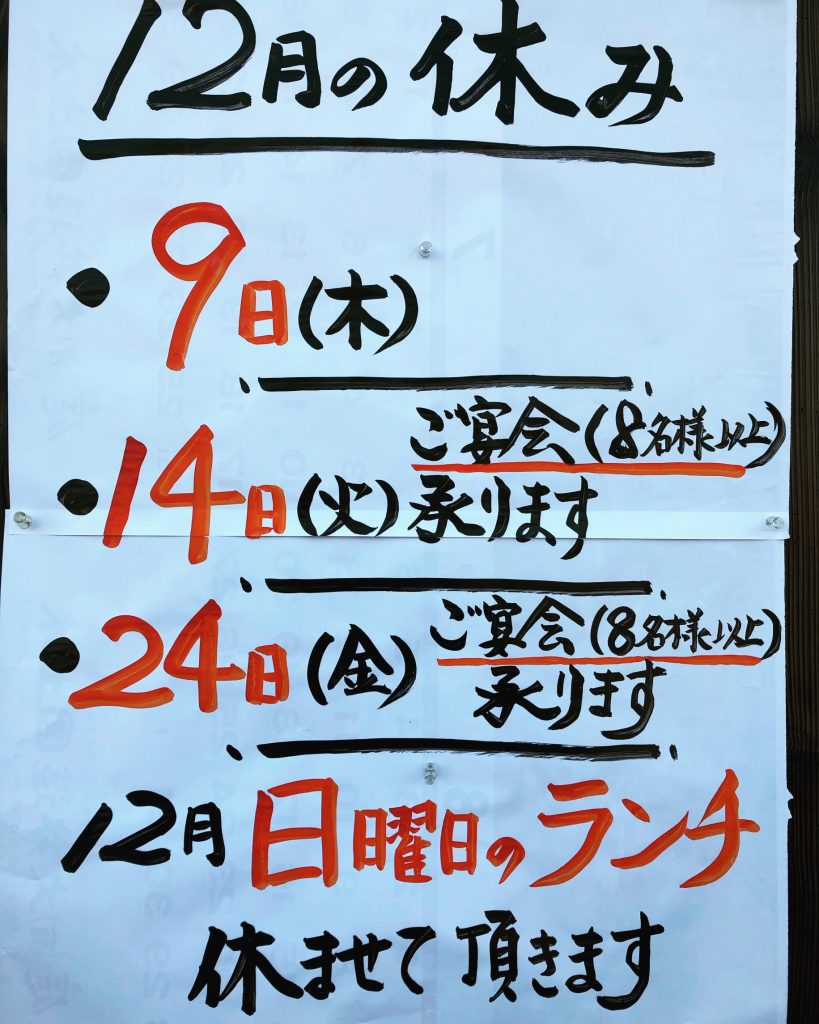 12月の休み
・9日(木)
・14日(火)ご宴会(8名様以上)
承ります
・24日(金)ご宴会(8名様以上)
承ります
12月日曜日のランチ
休ませて頂きます